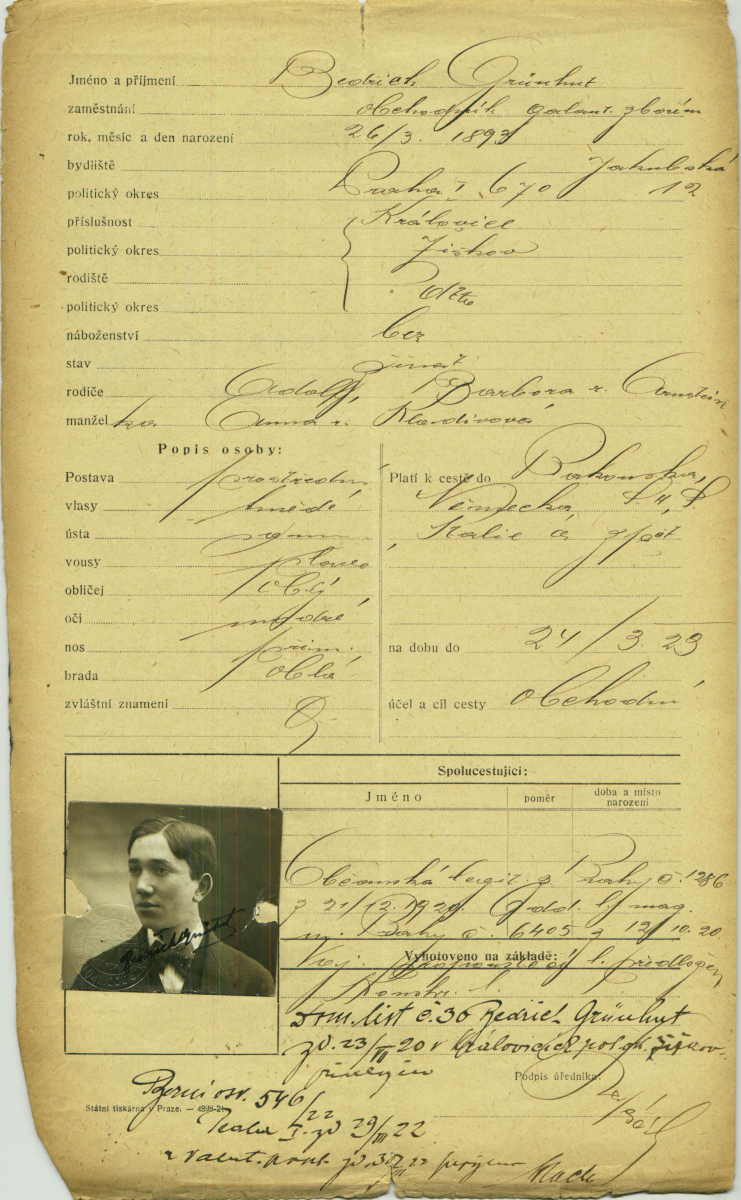 Jméno a příjmení Bedřich Grünhut
zaměstnání obchodník galant. zbožím
rok, měsíc a den narození 26/3. 1893
bydliště Jakubská
politický okres Praha I 670 12
příslušnost Královice
politický okres Žižkov
rodiště
politický okres dtto
náboženství bez
stav ženat
rodiče Adolf, Barbora r. Arnstein
manžel ka Anna r. Kladivová
Popis osoby:
Postava prostřední
vlasy hnědé
ústa
vousy
obličej oblý
oči modré
nos přim.
brada oblá
zvláštní znamení
Platí k cestě do Rakouska,
Německa,
Italie a zpět
na dobu do 24/3.23
účel a cíl cesty obchodní
Spolucestující:
Jméno poměr doba a místo narození
Občanská legit. z Prahy č. 1286
z 21/12.1920. Odd. l. mag.
m. Prahy č. 6405 z 12/10.20
Vyhotoveno na základě:
Dom. list č. 30 Bedřich Grünhut
zd. 23/VI 20 v Královicích pol. ok. Žižkov
Podpis úředníka:
Bedřich Grünhut
Berní osv. 546/22
Státní tiskárna v Praze. — 4898-21
Praha I. zd 29/III 22